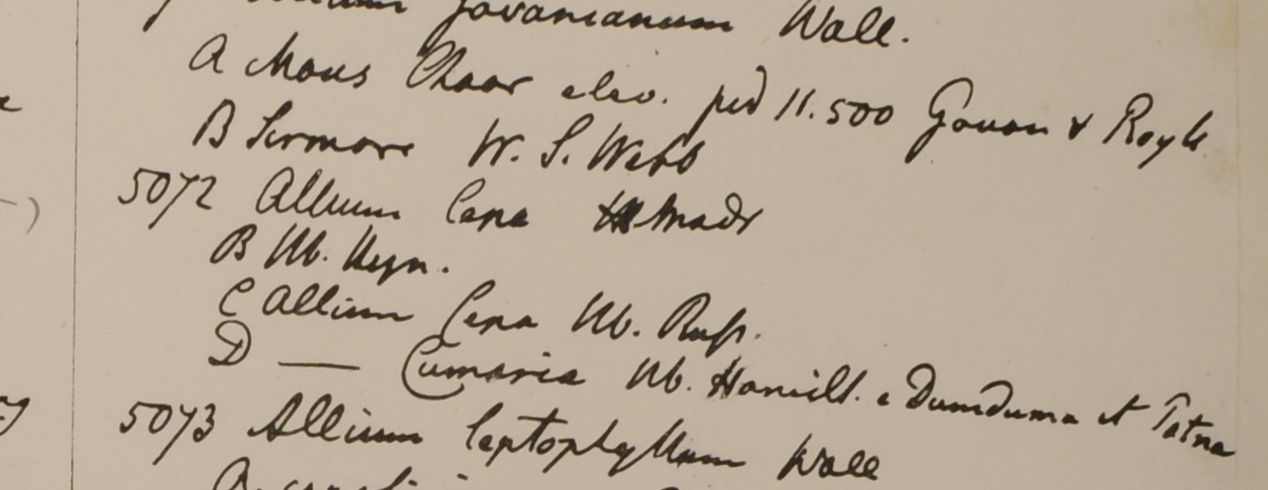 Govanianum Wall.
A Mons Choor elev. ped 11.500 Govan & Royle
B Sirmore W. S. Webb
5072 Allium Cepa Hb Madr
B Hb. Heyn.
C Allium Cepa Hb. Russ.
D — Cumaria Hb. Hamilt. e Dumduma et Patna
5073 Allium leptophyllum Wall